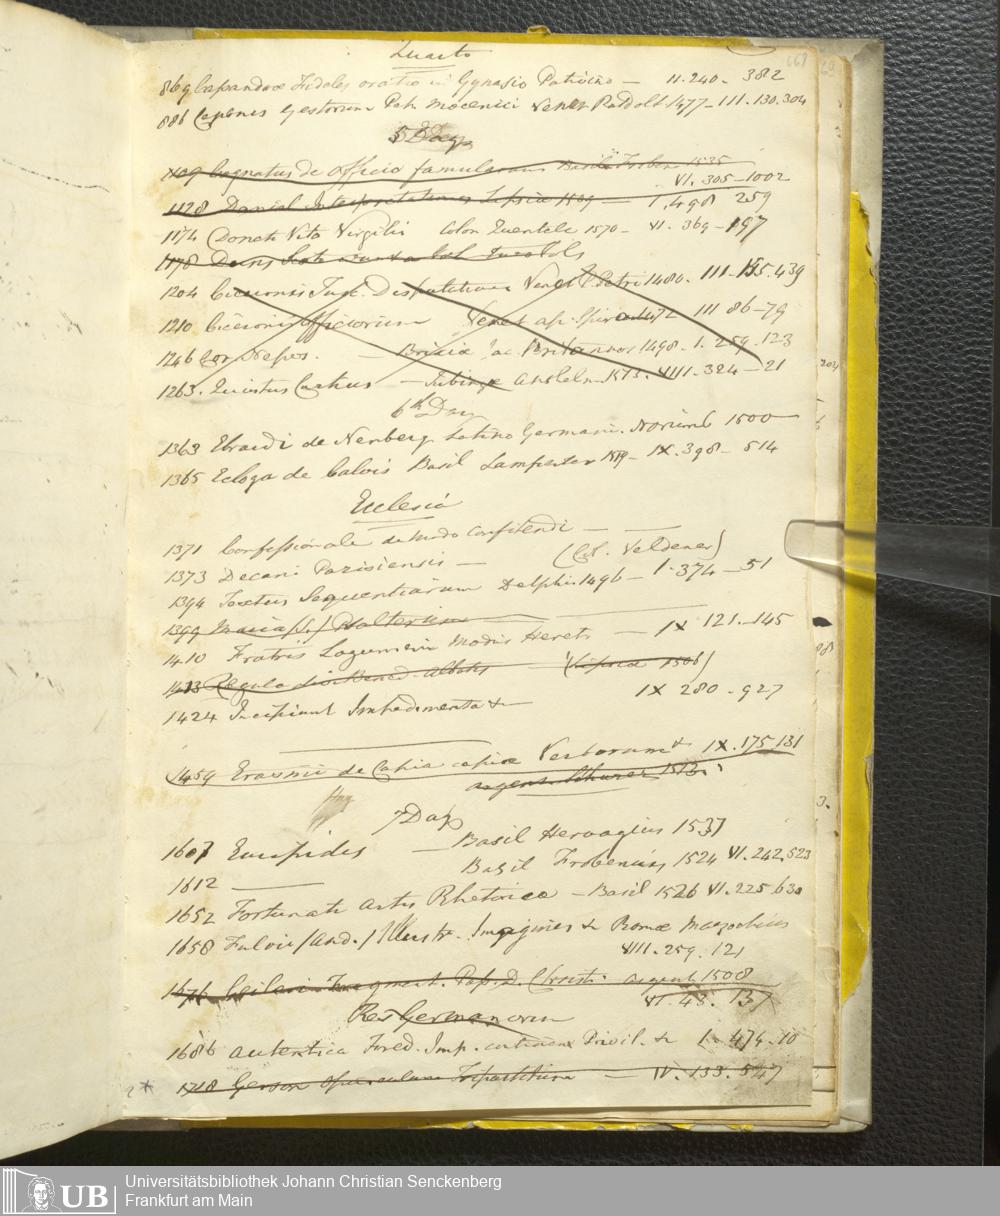 Quarto
869 Cassandrae Fidelis oratio in Gynasio Patavino — II. 240. 382
886 Cepionis Gestorum Petr. Mocenici Venet Ratdolt 1477 - III. 130. 304
5 Day
1109 Cognatus de officio famulorum Basil Froben 1535
VI. 305 - 1002
1128 Daniel Interpretationes Lipsiae 1509 — I. 498 259
1174 Donati Vita Virgilii Colon Quentele 1570 - VI. 369 - 197
1178
1204 Ciceronis Tusc. Disputationes Venet P. Petri 1480. III. 155. 439
1210 Ciceronis officiorum Venet ap. Spiram 1472 III 86-79
1246 Cor Nepos. — Brixiae Jac Britannos 1498 - I. 259. 123
1263. Quintus Curtius — Tubingae Anshelm 1513. VIII. 324 - 21
6th Day
1363 Ebrardi de Nenberg Latino Germani. Norimb 1500
1365 Ecloga de Calvis Basil Lamperter 1519 - IX. 398 - 514
Ecclesia
1371 Confessionale de modo confitendi —
1373 Decani Parisiensis — (Col. Veldener)
1394 Textus Sequentiarum Delphi 1496 - I. 374 - 51
1399 Maria (S.) Psalterium
1410 Fratris Lagumein Modus Heret — IX 121 - 145
1413 Regula Abbatis (Lipsiae 1506)
1424 Incipiunt Impedimenta &c IX 280 - 927
1459 Erasmi de Copia copiae Verborum &c IX. 175 131
argent. Schurer 1513.
7 Day
1607 Euripides — Basil Hervagius 1537
1612 — Basil Frobenius 1524 VI. 242. 523
1652 Fortunati Artis Rhetoricae - Basil 1526 VI. 225. 630
1658 Fulvii (And.) Illustr. Imagines &c Romae Mazochius
VIII. 259. 121
1676 Fragment. Pas. D. Christi argent 1508
VI. 43. 137
Res Germanorum
1686 Autentica Fred. Imp. continens Privil. &c I. 474. 10
1718 Gerson opusculum Tripartitum — IV. 133. 547
Universitätsbibliothek Johann Christian Senckenberg
Frankfurt am Main
UB